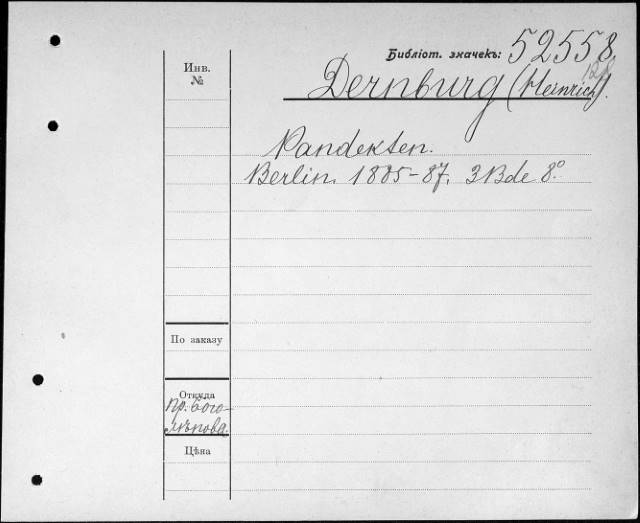 Библіот. значекъ: 52558
Инв.
№
Dernburg (Heinrich).
Pandekten.
Berlin. 1885-87. 3 Bde 8°.
По заказу
Откуда
пр. Бого-
лѣпова.
Цѣна